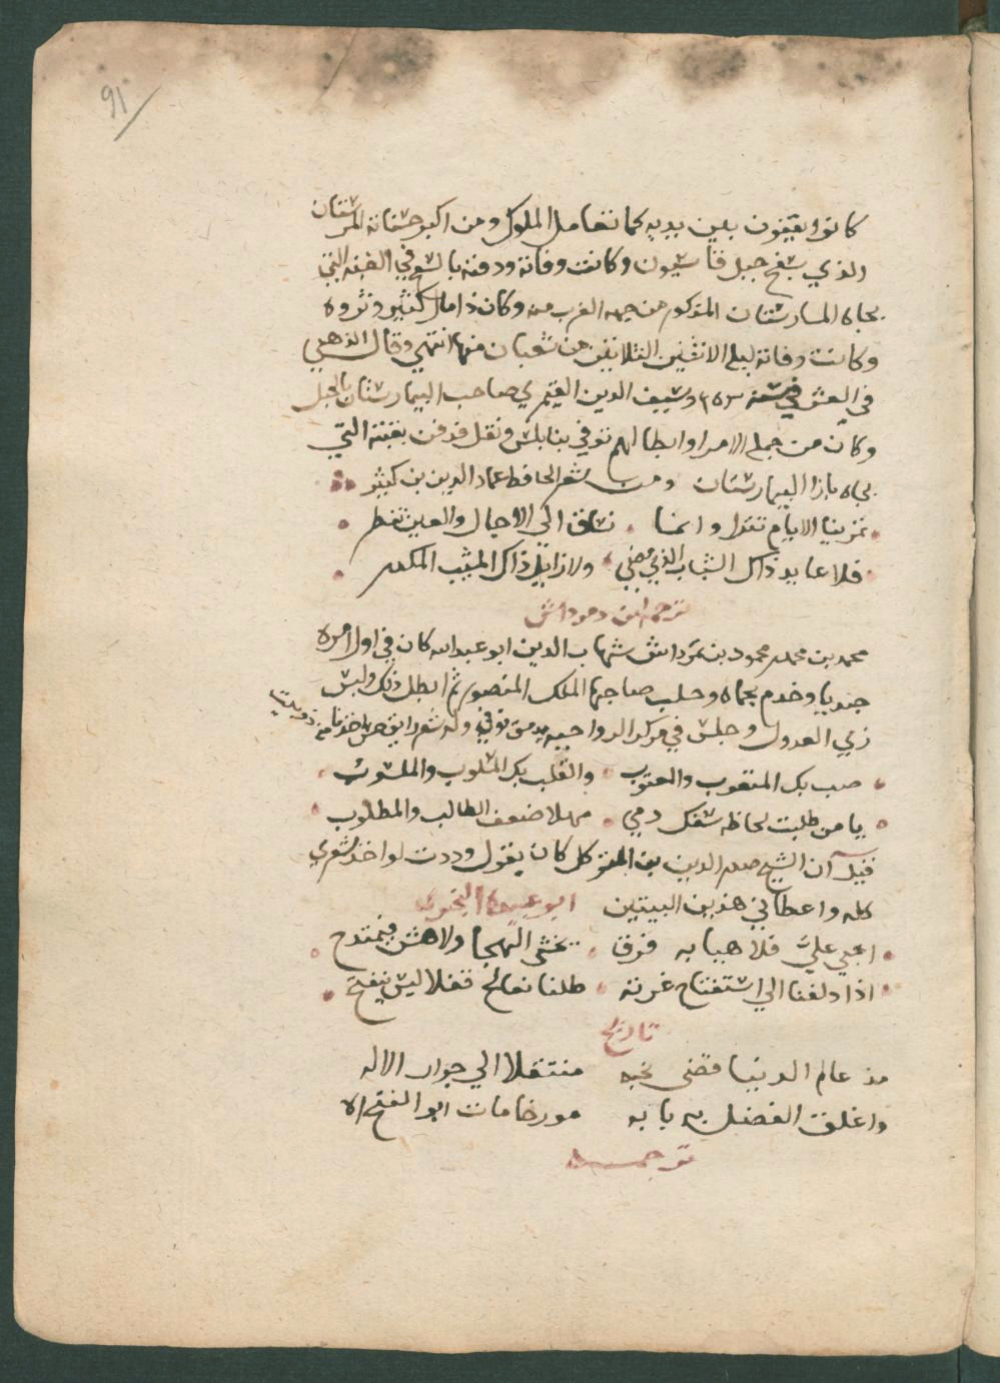 91
كانوا يقفون بين يديه كما تعامل الملوك ومن اكبر حسناته المرستان
الذي بسفح جبل قاسيون وكانت وفاته ودفنه بالسفح في القبه التي
تجاه المارستان المذكور من جهه الغرب منه وكان ذا مال كثير وثروه
وكانت وفاته ليله الاثنين الثلاثين من شعبان منها انتهي وقال الذهبي
في العبر في سنه ٦٥٣ وسيف الدين القيمري صاحب البيمارستان بالجبل
وكان من جمله الامرا وابطالهم توفي بنابلس ونقل فدفن بقبته التي
تجاه بازا البيمارستان ومن شعر الحافظ عماد الدين بن كثير
تمر بنا الايام تترا وانما نساق الى الاجال والعين تنظر
فلا عايد ذاك الشباب الذي مضي ولا زايل ذاك المشيب المكدر
ترجمه ابن دمرداش
محمد بن محمد محمود بن تمرداش شهاب الدين ابو عبد الله كان في اول امره
جنديا وخدم بحماه وحلب صاحبها الملك المنصور ثم ابطل ذلك ولبس
زي العدول وجلس في مركز الرواحيه بدمشق توفي وله شعر رايق
صب بك المتعوب والمعتوب والقلب بك المسلوب والملسوب
يا من طلبت لحاظه سفك دمي مهلا ضعف الطالب والمطلوب
قيل آن الشيخ صدر الدين بن المتوكل كان يقول وددت لو اخذ شعري
كله واعطاني هذين البيتين ابو عبيده النحوي
اعجي عليّ فلا هيابه فرق تخشى الهجا ولا هش فيمتدح
اذا دلفنا الي استفتاح غرته ظلنا نعالج قفلا ليس ينفتح
تاريخ
مذ عالم الدنيا قضى نحبه منتقلا الي جوار الاله
واغلق الفضل به بابه مورخا مات ابو الفتح اه
ترجمه